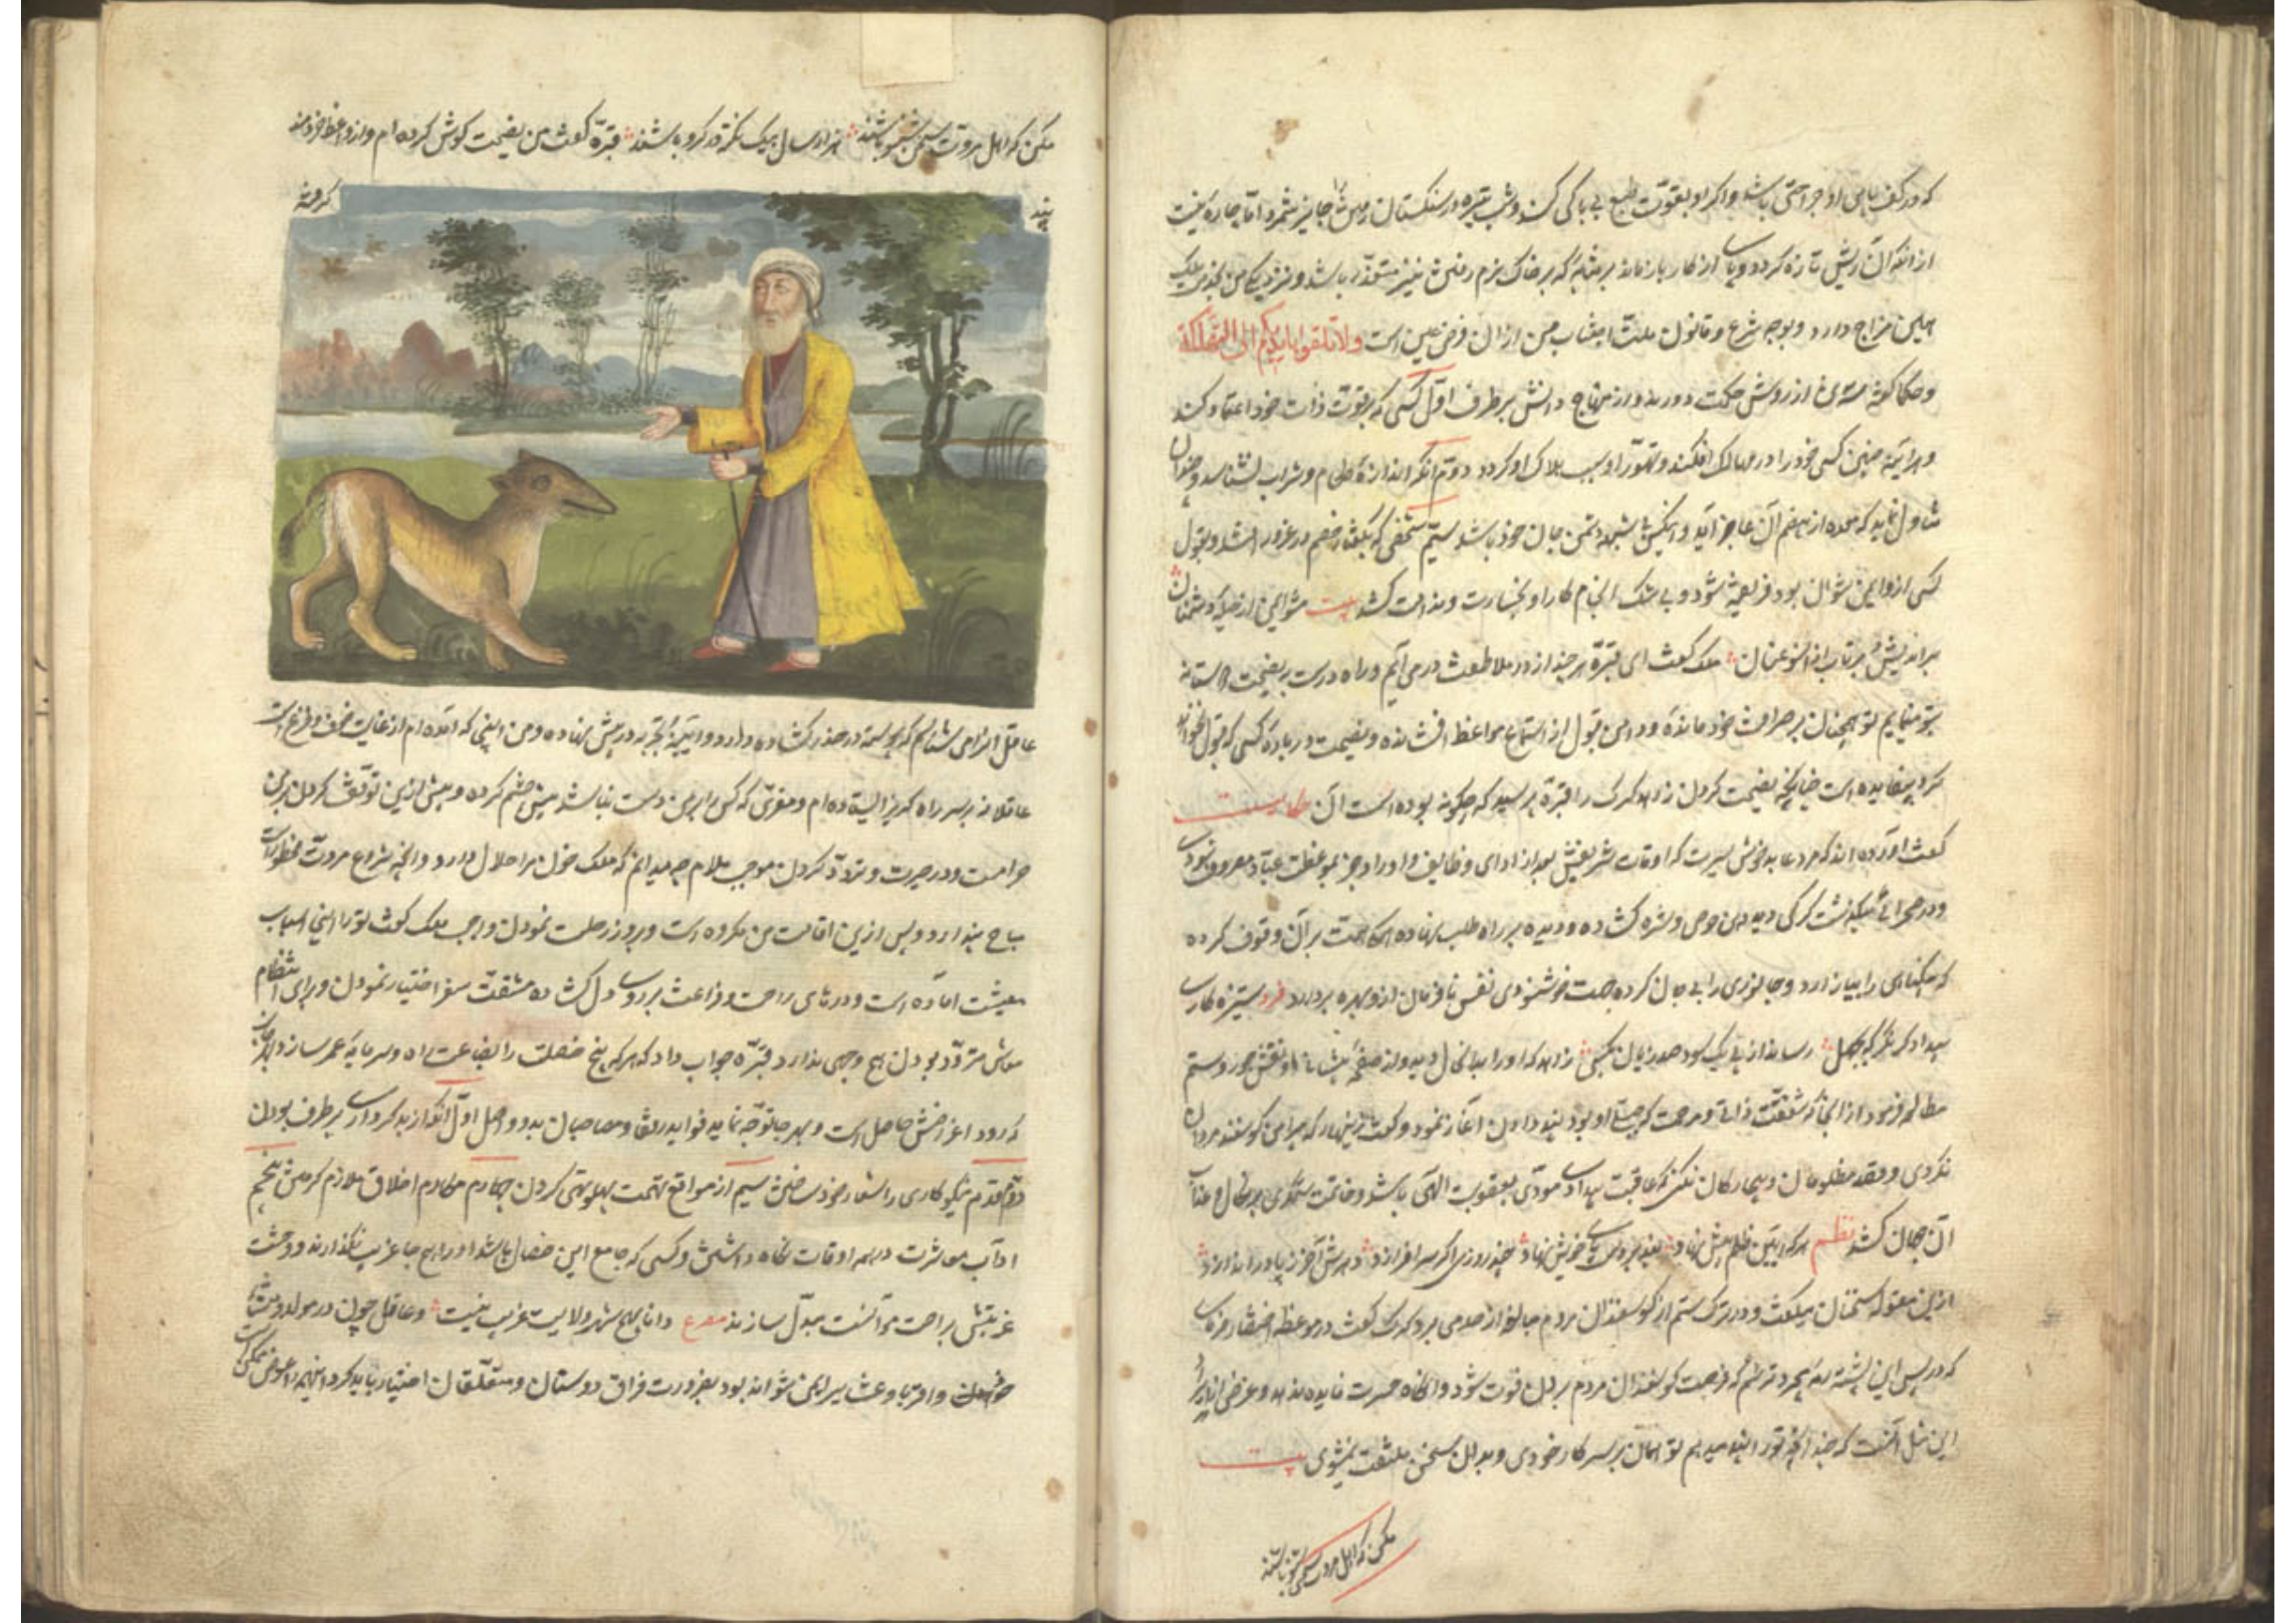 که در کف پای او جراحتی باشد و اگر او بقوّت طبع بی باکی کند و شب تیره در سنکستان رفتن جایز شمرد امّا چاره نیست
از آنکه آن ریش تازه کردد و پای از کار باز ماند بر مثابهٔ که بر خاک نرم رفتن نیز متعذّر باشد و نزدیکی من بخدمت ملک
همین مزاج دارد و بوجه شرع و قانون ملّت اجتناب من از آن فرض عین است ولا تلقوا بایدیکم الی التهلکة
و حکما کفته سه تن از روش حکمت دورند و از منهاج دانش بر طرف اوّل کسی که بر قوّت ذات خود اعتماد کند
و هر آینه چنین کسی خود را در مهالک افکند و تهوّر او سبب هلاک او کردد دوّم آنکه اندازهٔ طعام و شراب نشناسد و چندان
تناول نماید که معده از هضم آن عاجز آید و اینکس بی شبهه دشمن جان خود باشد سیّم شخصی که بکفتار خصم در غرور افتد و بقول
کسی که از و ایمن نتوان بود فریفته شود و بی شک انجام کار او بخسارت و ندامت کشد بیت مشو ایمن از حیلهٔ دشمنان
بر اندیش و بر تاب از آنسو عنان ملک کفت ای قبّره هر چند از در ملاطفت در می آیم و راه درست بر نصیحت دوستانه
بتو مینمایم تو همچنان بر صرافت خود ماندهٔ و دامن قبول از استماع مواعظ افشانده و نصیحت در بارهٔ کسی که قبول نخواهد
کرد بیفایده است چنانچه نصیحت کردن زاهد کرک را قبّره پرسید که چکونه بوده است آن حکایت
کفت آورده اند که مرد عابد خوش سیرت که اوقات شریفش بعد از ادای وظایف و اوراد جز بموعظت عباد مصروف نبودی
و در صحرائی میکذشت کرکی دید دهن حرص و شره کشاده و دیده بر راه طلب نهاده همکی همت بر آن وقوف کرده
که بیکناهی را بیازارد و جانوری را بی جان کرده جهت خوشنودی نفس نافرمان ازو بهره بردارد فرد ستیزه کاری
بیدادکر نکر که بجهل رساند از پی یک سود صد زیان بکسی زاهد که او را بدانحال دید و از صفحهٔ پیشانی او نقش جور و ستم
مطالعه فرمود از آنجا که شفقت ذاتی و مرحمت جبلّی او بود پند دادن آغاز نمود و کفت زینهار که پیرامن کوسفند مردمان
نکردی و قصد مظلومان و بیچارکان نکنی که عاقبت بیداد مودّی بعقوبت الهی باشد و خاتمت ستمکری بنکال و عذاب
آن جهان کشد نظم هر که آیین ظلم پیش نهاد بند بر دست و پای خویش نهاد چند روزی اکر سر افرازد دهرش آخر ز پا در اندازد
ازین مقوله سخنان میکفت و در ترک ستم از کوسفندان مردم مبالغه از حد می برد کرک کفت در موعظه اختصار فرمای
که در پس این پشته رمه میچرد ترسم که فرصت کوسفندان مردم بردن فوت شود و آنکاه حسرت فایده ندهد و غرض از ایراد
این مثل آنست که چندانکه تو را پند میدهم تو همان بر سر کار خودی و بدان سخن ملتفت نمیشوی بیت
مکن که اهل مروت سخن شنو باشند
مکن که اهل مروّت سخن شنو باشند هزار سال بیک نکته در کرو باشند قبّره کفت من نصیحت کوش کرده ام و از واعظ خردمند
پند کرفته
عاقل آنرا می شناسم که پیوسته در حذر کشاده دارد و آیینهٔ تجربه در پیش نهاده و من اینجا که آمده ام از غایت خوف و فزع است
عاقلانه بر سر راه کریز ایستاده ام و مفرّی که کس را بر من دست نباشد پیش چشم کرده و بیش ازین توقّف کردن بر من
حرامست و در حیرت و تردّد کردن موجب ملام چه میدانم که ملک خون مرا حلال دارد و آنچه شروع مروّت محظور است
مباح پندارد و پس ازین اقامت من مکروه است و بزودی رحلت نمودن واجب ملک کفت تو را اینجا اسباب
معیشت آماده است و درهای راحت و فراغت بر روی دل کشاده مشقّت سفر اختیار نمودن و برای انتظام
معاش متردّد بودن هیچ وجهی ندارد قبّره جواب داد که هر که پنج خصلت را بضاعت راه و سرمایهٔ عمر سازد بهر جانب
که رود اغراضش حاصل است و بهر جا توجّه نماید فواید رفقا و مصاحبان بدو واصل اوّل آنکه از بدکرداری بر طرف بودن
دوّم قدم نیکوکاری را شعار خود ساختن سیم از مواقع تهمت پهلو تهی کردن چهارم مکارم اخلاق ملازم کرفتن پنجم
آداب معاشرت در همه اوقات نکاه داشتن و کسی که جامع این خصال باشد او را هیچ جا غریب نکذارند و وحشت
غربتش براحت موآنست مبدّل سازند مصرع دانا بهیچ شهر و ولایت غریب نیست و عاقل چون در مولد و منشاء
خویش و اقربا و عشایر ایمن نتواند بود بضرورت فراق دوستان و متعلّقان اختیار باید کرد اینهمه را عوض ممکن